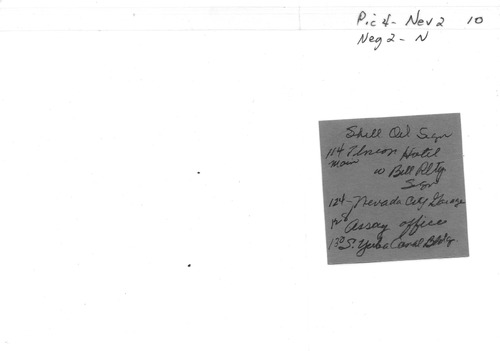 Pic 4 - Nev 2 10
Neg 2 - N
Shell Oil Sign
114 Union Hotel
Main w Bill Rltg
Sign
124 - Nevada City Garage
128 Assay office
130 S. Yuba Canal Bldg